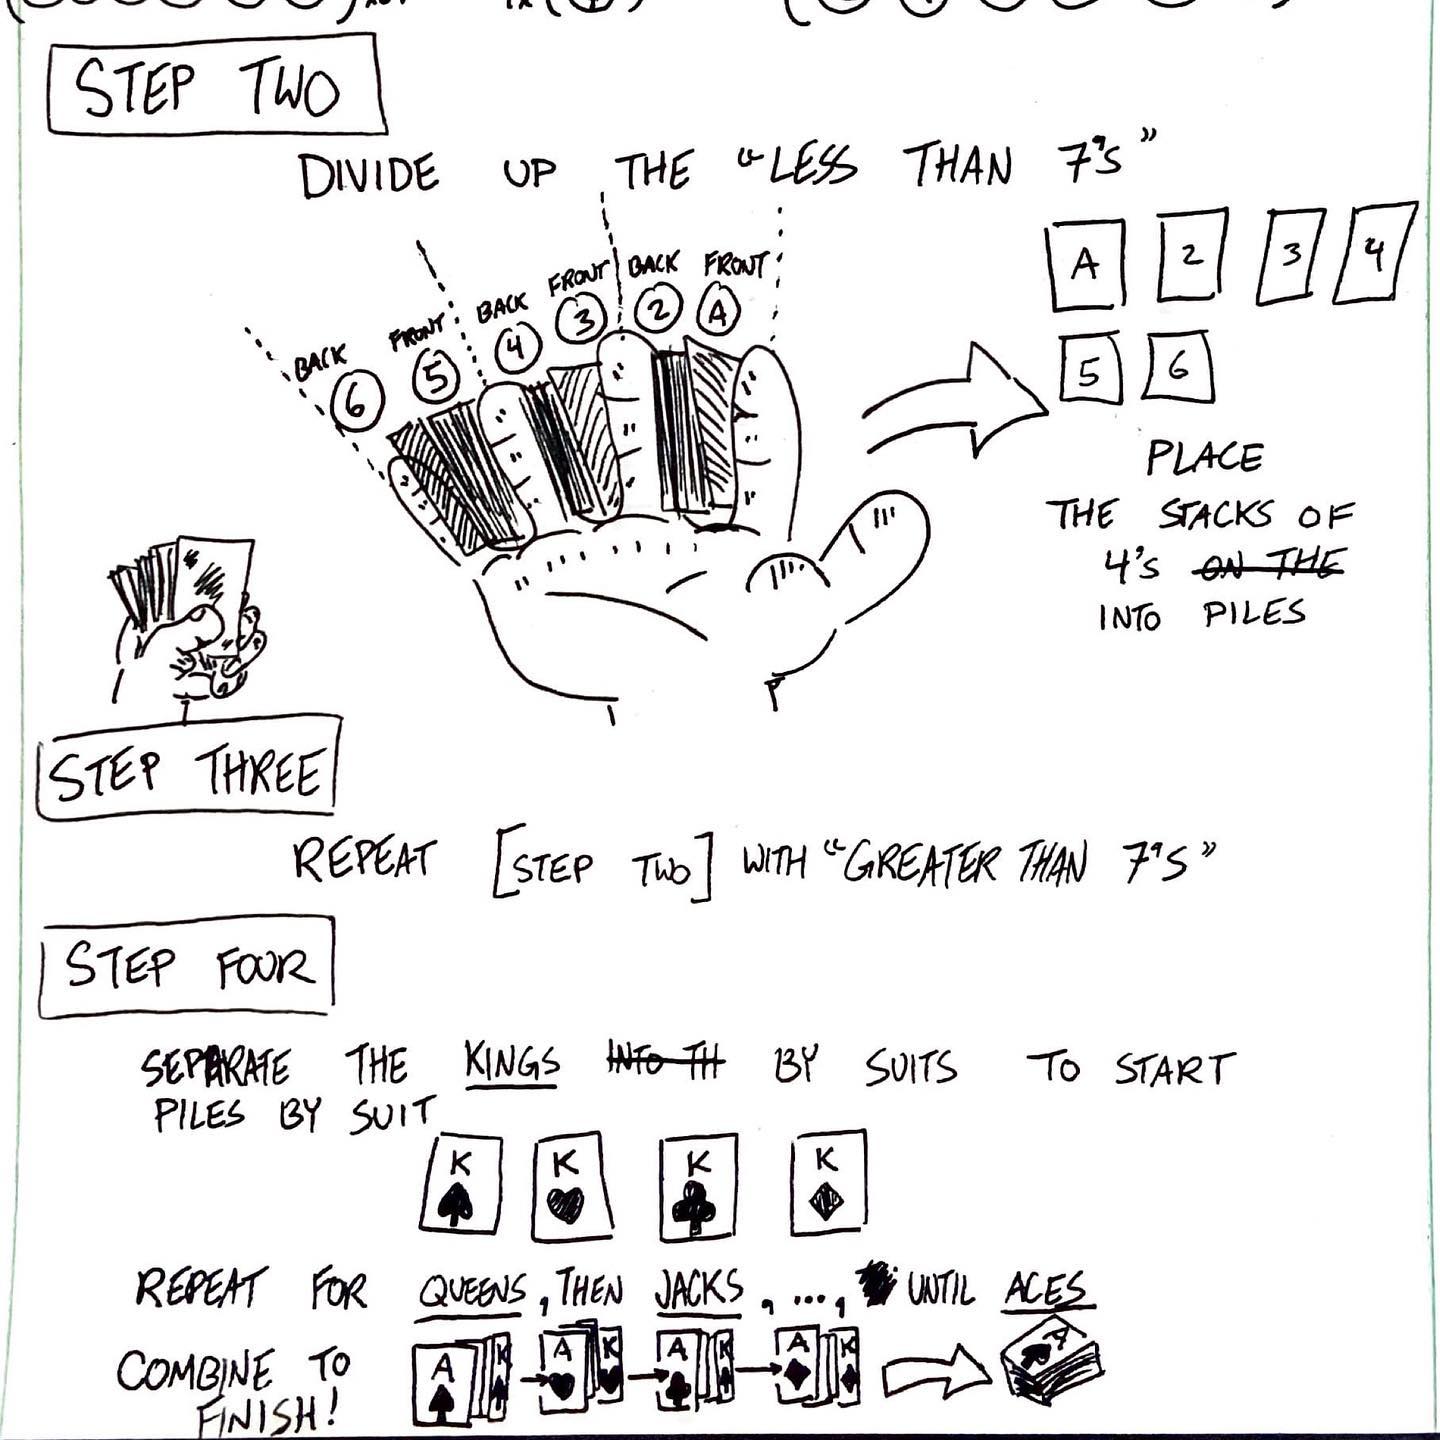 STEP TWO
DIVIDE UP THE "LESS THAN 7'S"
BACK FRONT BACK FRONT BACK FRONT
6 5 4 3 2 A
A 2 3 4
5 6
PLACE
THE STACKS OF
4'S ON THE
INTO PILES
STEP THREE
REPEAT [STEP TWO] WITH "GREATER THAN 7'S"
STEP FOUR
SEPARATE THE KINGS INTO TH BY SUITS TO START
PILES BY SUIT
K K K K
REPEAT FOR QUEENS, THEN JACKS, ..., UNTIL ACES
COMBINE TO
FINISH!
A K A K A K A K A